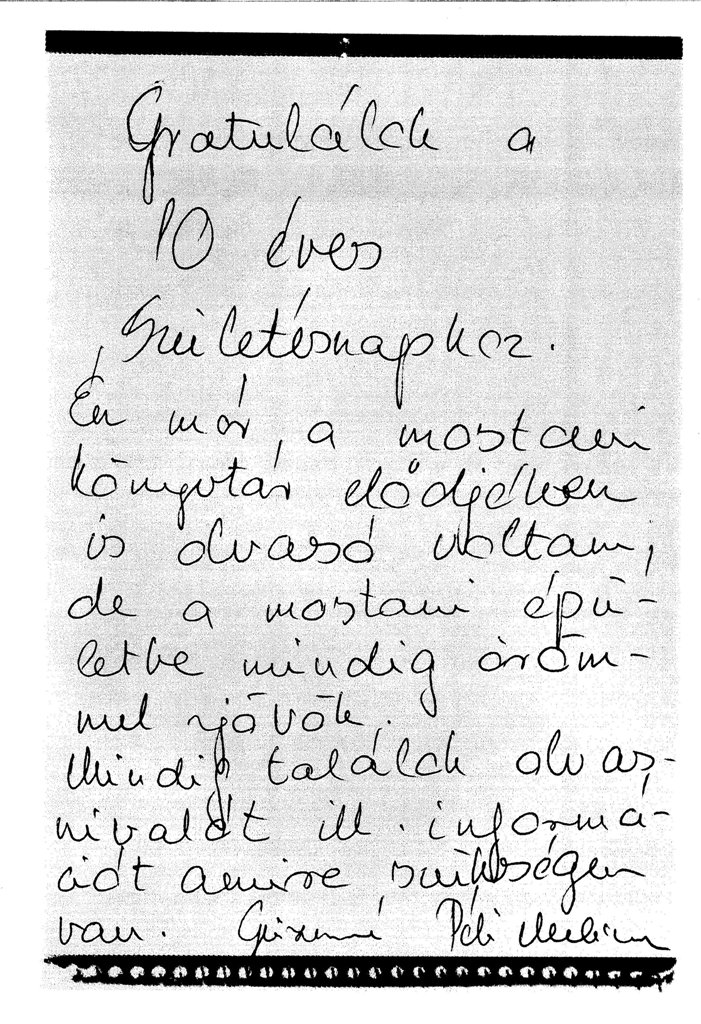 Gratulálok a
10 éves
Születésnaphoz.
Én már a mostani
könyvtár elődjében
is olvasó voltam,
de a mostani épü-
letbe mindig öröm-
mel jövök.
Mindig találok olvas-
nivalót ill. informá-
ciót amire szükségem
van. Péli